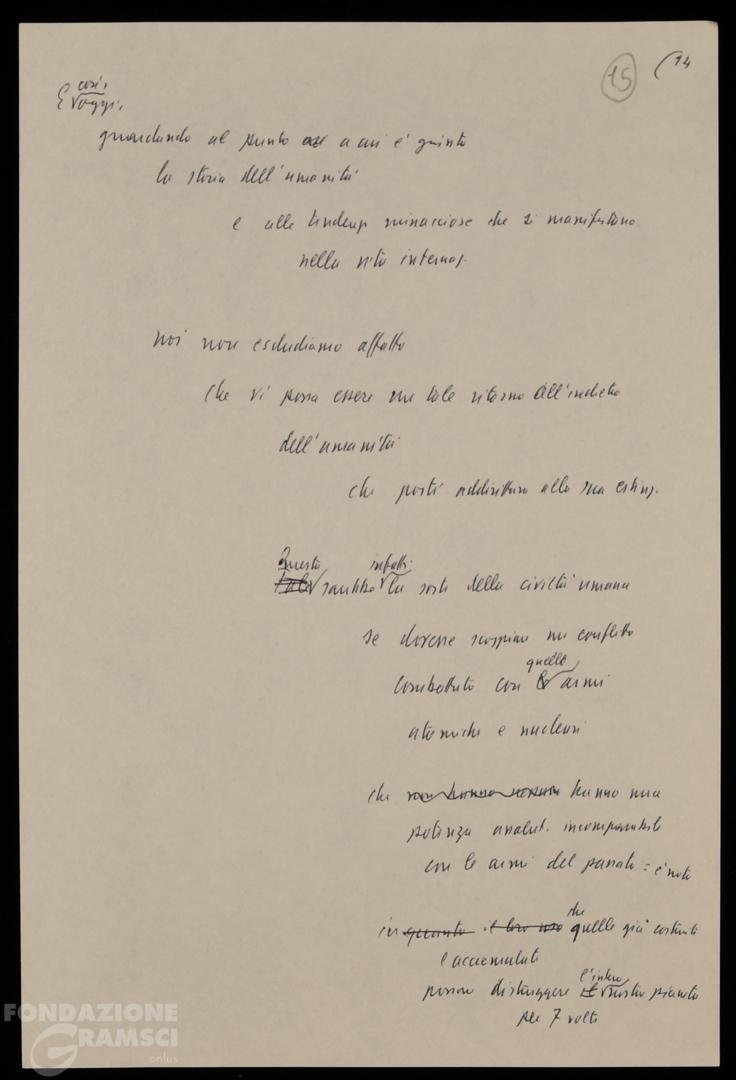 15 (14
così,
E oggi,
guardando al punto a cui è giunta
la storia dell'umanità
e alle tendenze minacciose che si manifestano
nella vita internaz.
noi non escludiamo affatto
che vi possa essere un tale ritorno all'indietro
dell'umanità
che porti addirittura alla sua estinz.
Questa infatti
Tale sarebbe la sorte della civiltà umana
se dovesse scoppiare un conflitto
quelle
combattuto con armi
atomiche e nucleari
che non hanno nessuna hanno una
potenza assolut. incomparabile
con le armi del passato = è noto
che
in quanto il loro uso quelle già costruite
e accumulate
l'intero
possono distruggere nostro pianeta
per 7 volte
FONDAZIONE
GRAMSCI
onlus